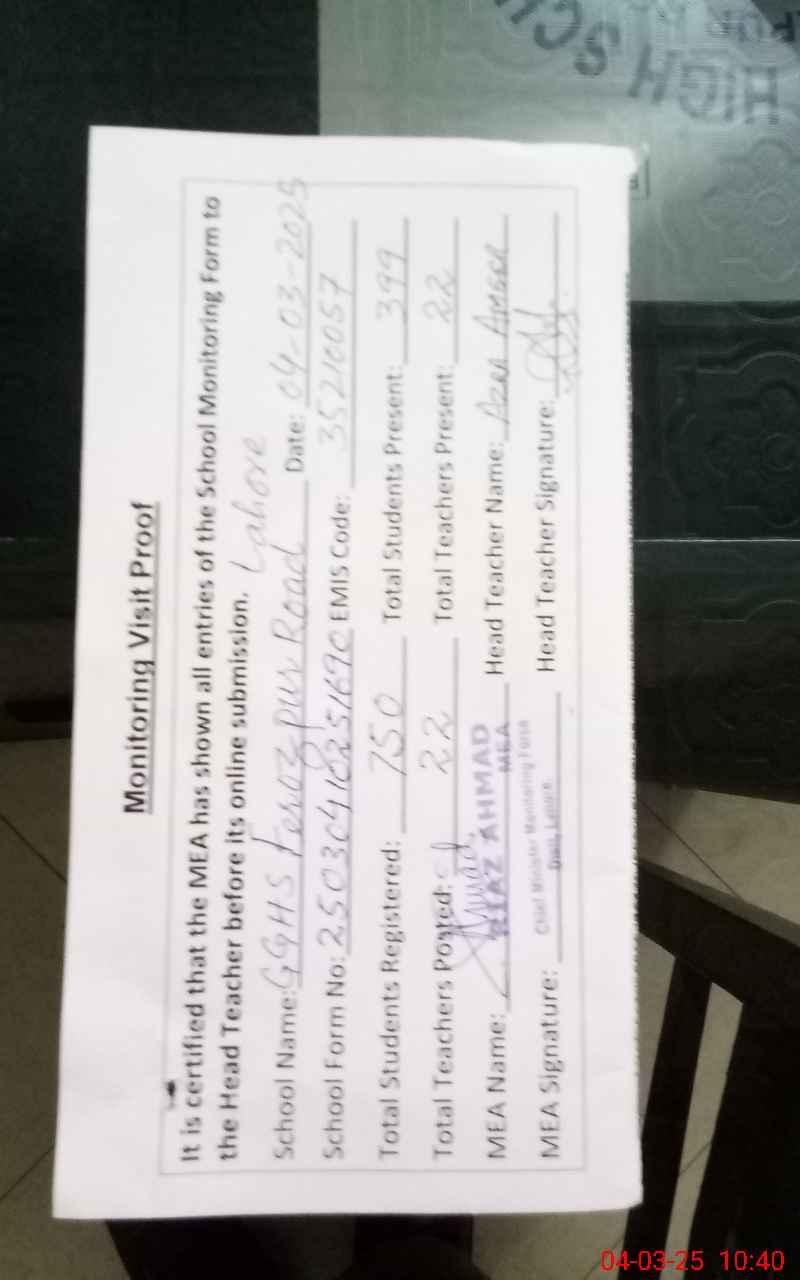 Monitoring Visit Proof
It is certified that the MEA has shown all entries of the School Monitoring Form to
the Head Teacher before its online submission.
School Name: GGHS Ferozpur Road Lahore Date: 04-03-2025
School Form No: 25030410251690 EMIS Code: 35210057
Total Students Registered: 750 Total Students Present: 399
Total Teachers Posted: 22 Total Teachers Present: 22
MEA Name: AHMAD MEA Head Teacher Name: Azra Ameer
Chief Minister Monitoring Force
MEA Signature: Distt. Lahore Head Teacher Signature:
HIGH SCH
PUR
04-03-25 10:40